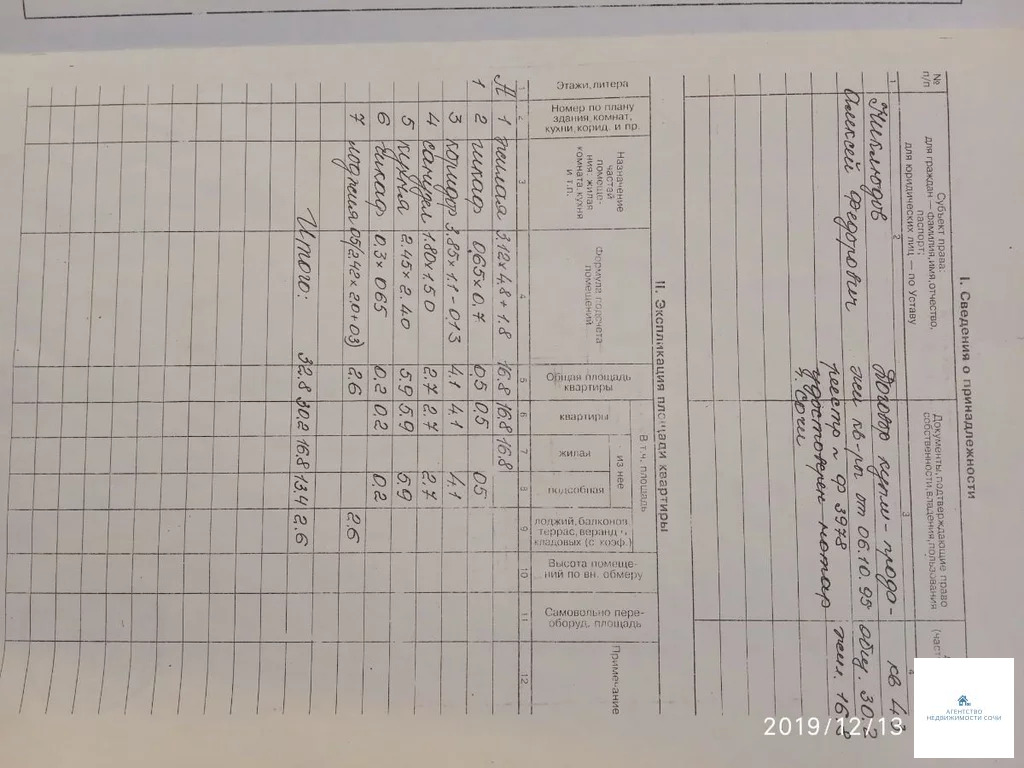 I. Сведения о принадлежности
№ п/п
Субъект права:
для граждан — фамилия, имя, отчество,
паспорт;
для юридических лиц — по Уставу
Документы, подтверждающие право
собственности, владения, пользования
(част
1 2 3 4
Алексей Федорович
Договор купли-прода-
жи кв-ры от 06.10.95
реестр № ф 3978
удостоверен нотар
г. Сочи
кв 43
общ. 30.2
жил. 16.8
II. Экспликация площади квартиры
Этажи, литера
Номер по плану
здания, комнат,
кухни, корид. и пр.
Назначение
частей
помеще-
ния: жилая
комната, кухня
и т.п.
Формула подсчета
помещений
Общая площадь
квартиры
В т.ч. площадь
квартиры
из нее
жилая
подсобная
лоджий, балконов
террас, веранд и
кладовых (с коэф.)
Высота помеще-
ний по вн. обмеру
Самовольно пере-
оборуд. площадь
Примечание
1 2 3 4 5 6 7 8 9 10 11 12
1 жилая 3.12×4,8+1.8 16.8 16.8 16.8
1 2 шкаф 0,65×0,7 0.5 0.5 0.5
3 коридор 3.85×1.1-0.13 4.1 4.1 4.1
4 санузел 1.80×1.50 2.7 2.7 2.7
5 кухня 2.45×2.40 5.9 5.9 5.9
6 шкаф 0,3×0.65 0.2 0.2 0.2
7 лоджия 0.5(2.42×2.0+0.3) 2.6 2.6
Итого: 32.8 30.2 16.8 13.4 2.6
2019/12/13
АГЕНТСТВО
НЕДВИЖИМОСТИ СОЧИ